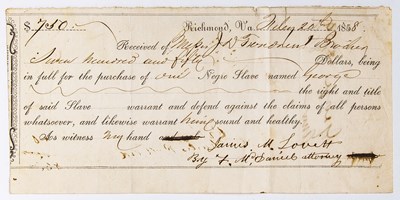 $ 750.00 Richmond, Va. 24th 1858
Received of Mess
Seven hundred and fifty Dollars, being
in full for the purchase of one Negro Slave named George
the right and title
of said Slave warrant and defend against the claims of all persons
whatsoever, and likewise warrant him sound and healthy.
As witness my hand
James M. Lovett
By F. McDaniel attorney